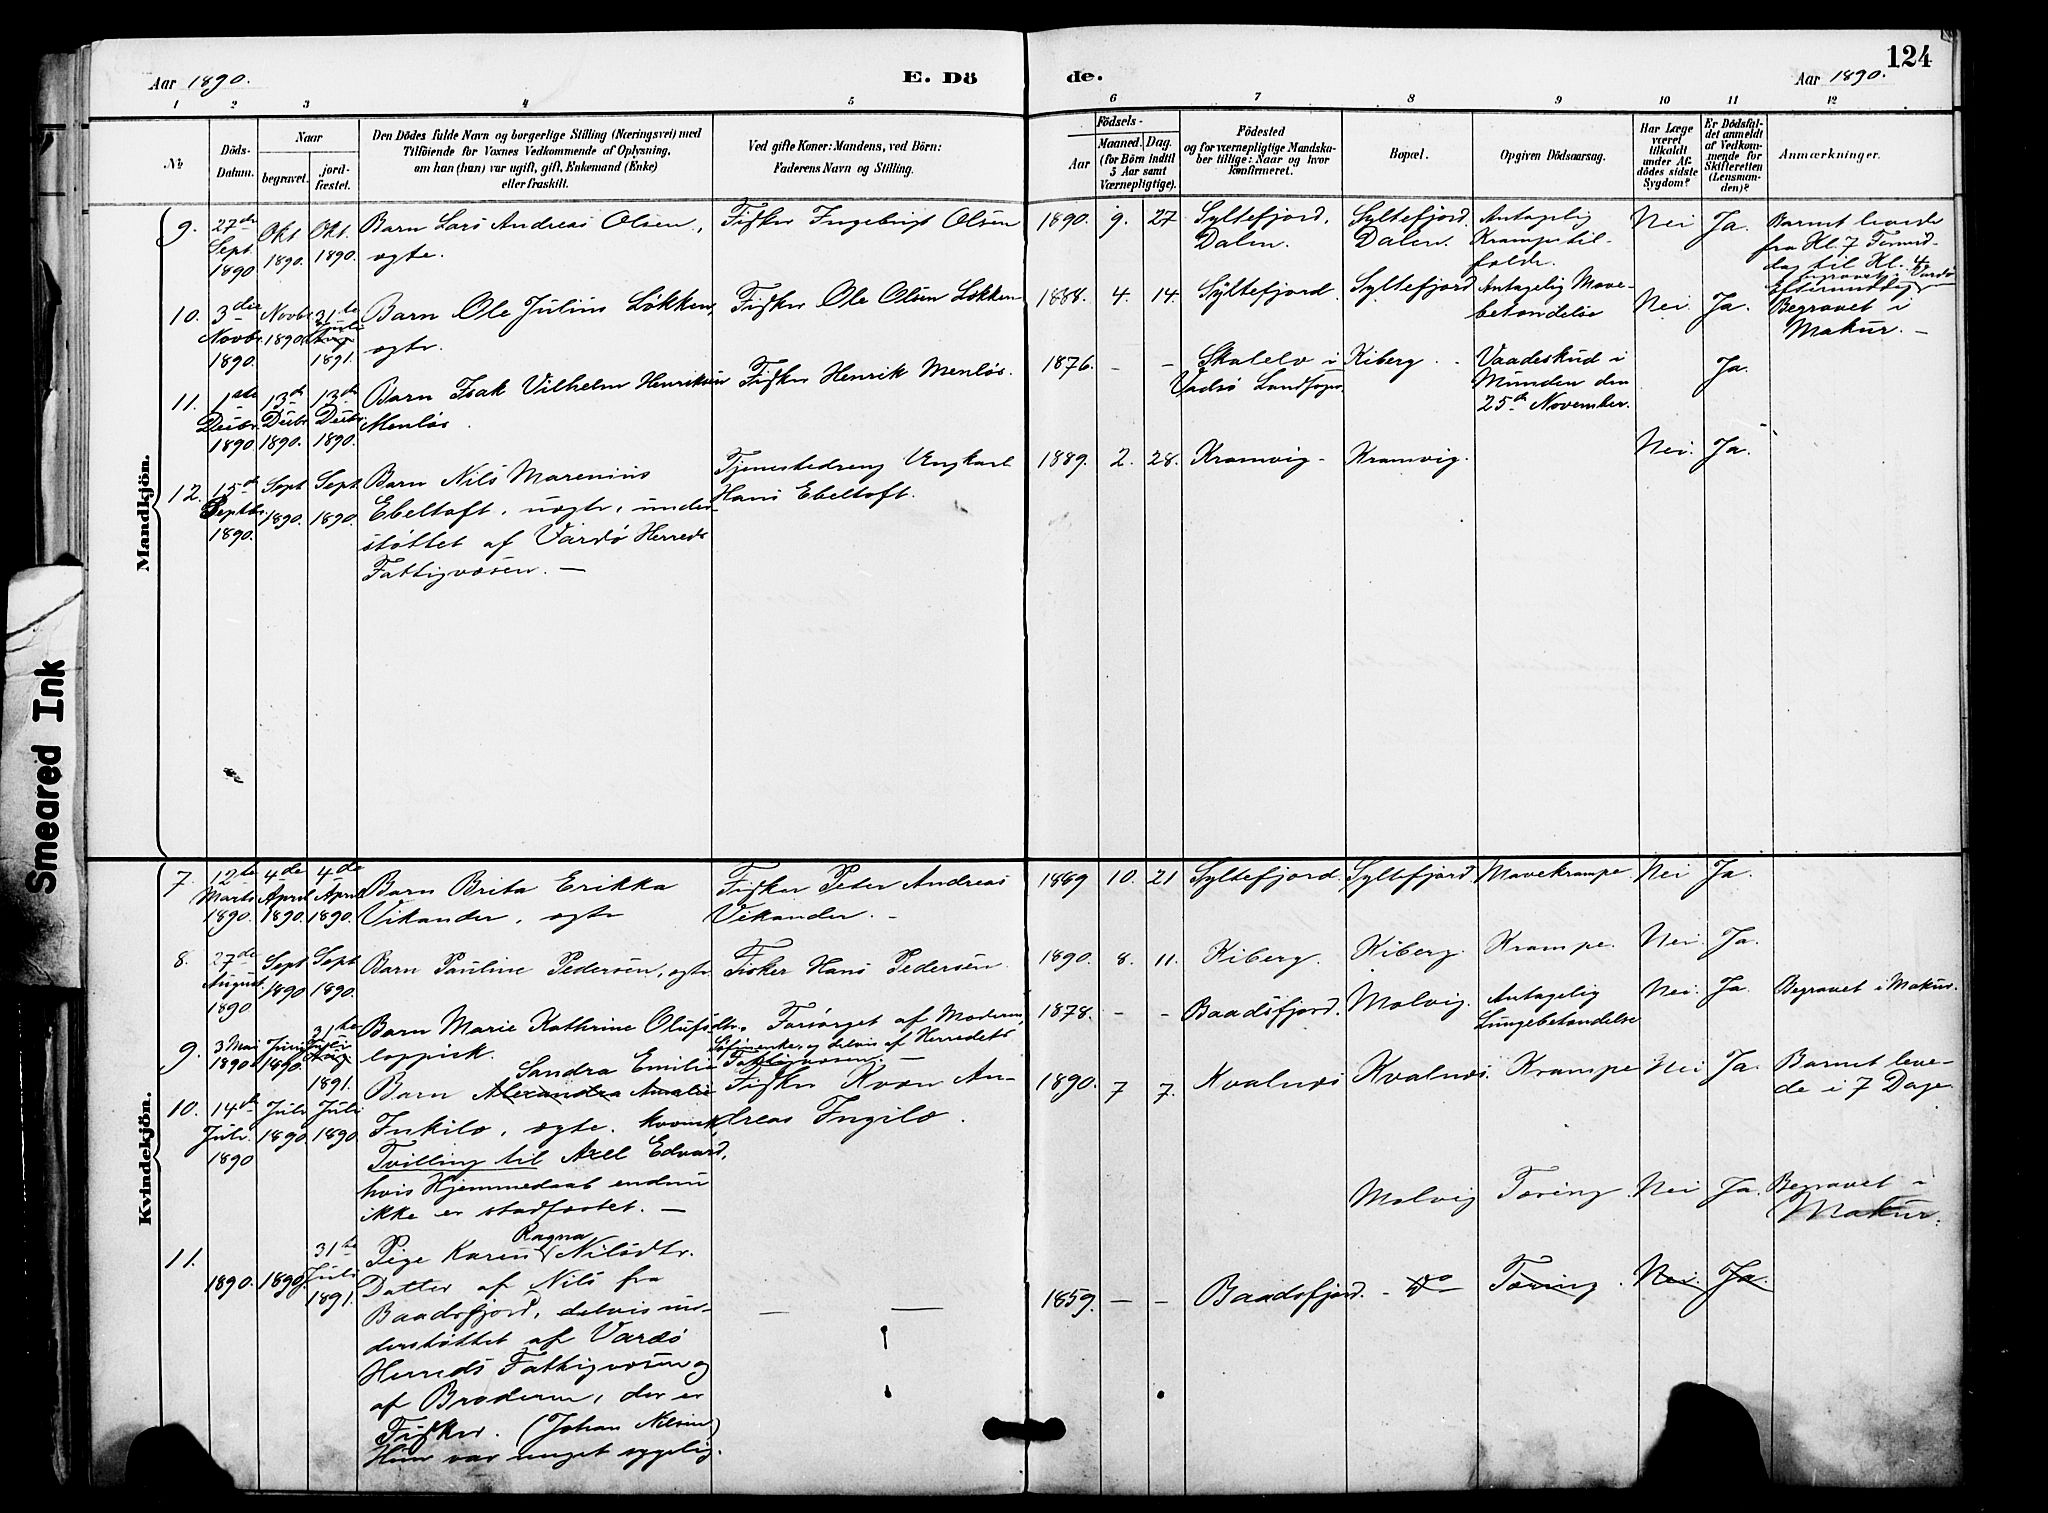 124
Aar 1890.
E. Dö
de.
Aar 1890.
1 2 3 4 5 6 7 8 9 10 11 12
No
Döds-
Datum.
Naar
begravet.
jord-
fæstet.
Den Dödes fulde Navn og borgerlige Stilling (Næringsvei) med
Tilföiende for Voxnes Vedkommende af Oplysning,
om han (hun) var ugift, gift, Enkemand (Enke)
eller fraskilt.
Ved gifte Koner: Mandens, ved Börn:
Faderens Navn og Stilling.
Födsels-
Aar
Maaned. Dag.
(for Börn indtil
5 Aar samt
Værnepligtige).
Födested
og for værnepligtige Mandska-
ber tillige: Naar og hvor
konfirmeret.
Bopæl.
Opgiven Dödsaarsag.
Har Læge
været
tilkaldt
under Af-
dödes sidste
Sygdom?
Er Dödsfal-
det anmeldt
af Vedkom-
mende for
Skifteretten
(Lensman-
den)?
Anmærkninger.
Mandkjön.
9.
27de
Sept.
1890
Okt.
1890.
Okt.
1890.
Barn Lars Andreas Olsen,
ægte.
Fisker Ingebrigt Olsen
1890. 9. 27
Syltefjord,
Dalen.
Syltefjord
Dalen.
Antagelig
Krampetil-
fælde.
Nei
Ja.
Barnet levede
fra Kl. 7 Formid-
dag til Kl. 4
Eftermiddag
begravet i Vardø
10.
3die
Novbr.
1890.
Novbr
1890
31te
Juli
1891.
Barn Ole Julius Løkken,
ægte.
Fisker Ole Olsen Løkken
1888. 4. 14.
Syltefjord.
Syltefjord
Antagelig Mave-
betændelse
Nei.
Ja.
Begravet i
Makur. —
11.
1ste
Decbr.
1890
13de
Decbr
1890.
13de
Decbr.
1890.
Barn Isak Vilhelm Henriksen
Menløs.
Fisker Henrik Menløs.
1876. - -
Skalelv i
Vadsö Landsogn.
Kiberg.
Vaadeskud i
Munden den
25de November.
Ja.
12.
15de
Septbr.
1890.
Sept.
1890.
Sept.
1890.
Barn Nils Marenius
Ebeltoft, uægte, under-
støttet af Vardø Herreds
Fattigvæsen. —
Tjenestedreng Ungkarl
Hans Ebeltoft.
1889. 2. 28.
Kramvig.
Kramvig.
Nei.
Ja.
Smeared Ink
Kvindekjön.
7.
12te
Marts
1890.
4de
April
1890.
4de
April
1890.
Barn Brita Erikka
Vikander, ægte
Fisker Peter Andreas
Vikander. —
1889 10. 21
Syltefjord.
Syltefjord
Mavekrampe
Nei
Ja.
8.
27de
August.
1890
Sept
1890
Sept.
1890.
Barn Pauline Pedersen, ægte
Fisker Hans Pedersen
1890. 8. 11.
Kiberg.
Kiberg.
Krampe.
Nei.
Ja.
9.
3 Mai
1890
Juni
1890.
31te
Juli
1891.
Barn Marie Kathrine Olufsdtr.
loppisk.
Forsørget af Moderen,
Søfinenke, og delvis af Herredets
Fattigvæsen. —
1878. - -
Baadsfjord.
Molvig.
Antagelig
Lungebetændelse
Nei.
Ja.
Begravet i Makur.
10.
14de
Juli.
1890
Juli
1890
Juli
1890.
Sandra Emilie
Barn Alexandra Amalie
Inkilæ, ægte. kvensk,
Tvilling til Axel Edvard,
hvis Hjemmedaab endnu
ikke er stadfæstet. —
Fisker Kvæn An-
dreas Ingilæ.
1890. 7 7.
Kvalnæs
Kvalnæs.
Krampe
Nei
Ja.
Barnet leve-
de i 7 Dage
Molvig
Tæring
Nei
Ja.
Begravet i
Makur.
11.
1890.
1890.
31te
Juli
1891.
Ragna
Pige Karen Nilsdtr.
Datter af Nils fra
Baadsfjord, delvis un-
derstøttet af Vardø
Herreds Fattigvæsen og
af Broderen, der er
Fisker. (Johan Nilsen)
Hun var meget sygelig.
— —
1859. — -
Baadsfjord.
do
Tæring.
Nei.
Ja.